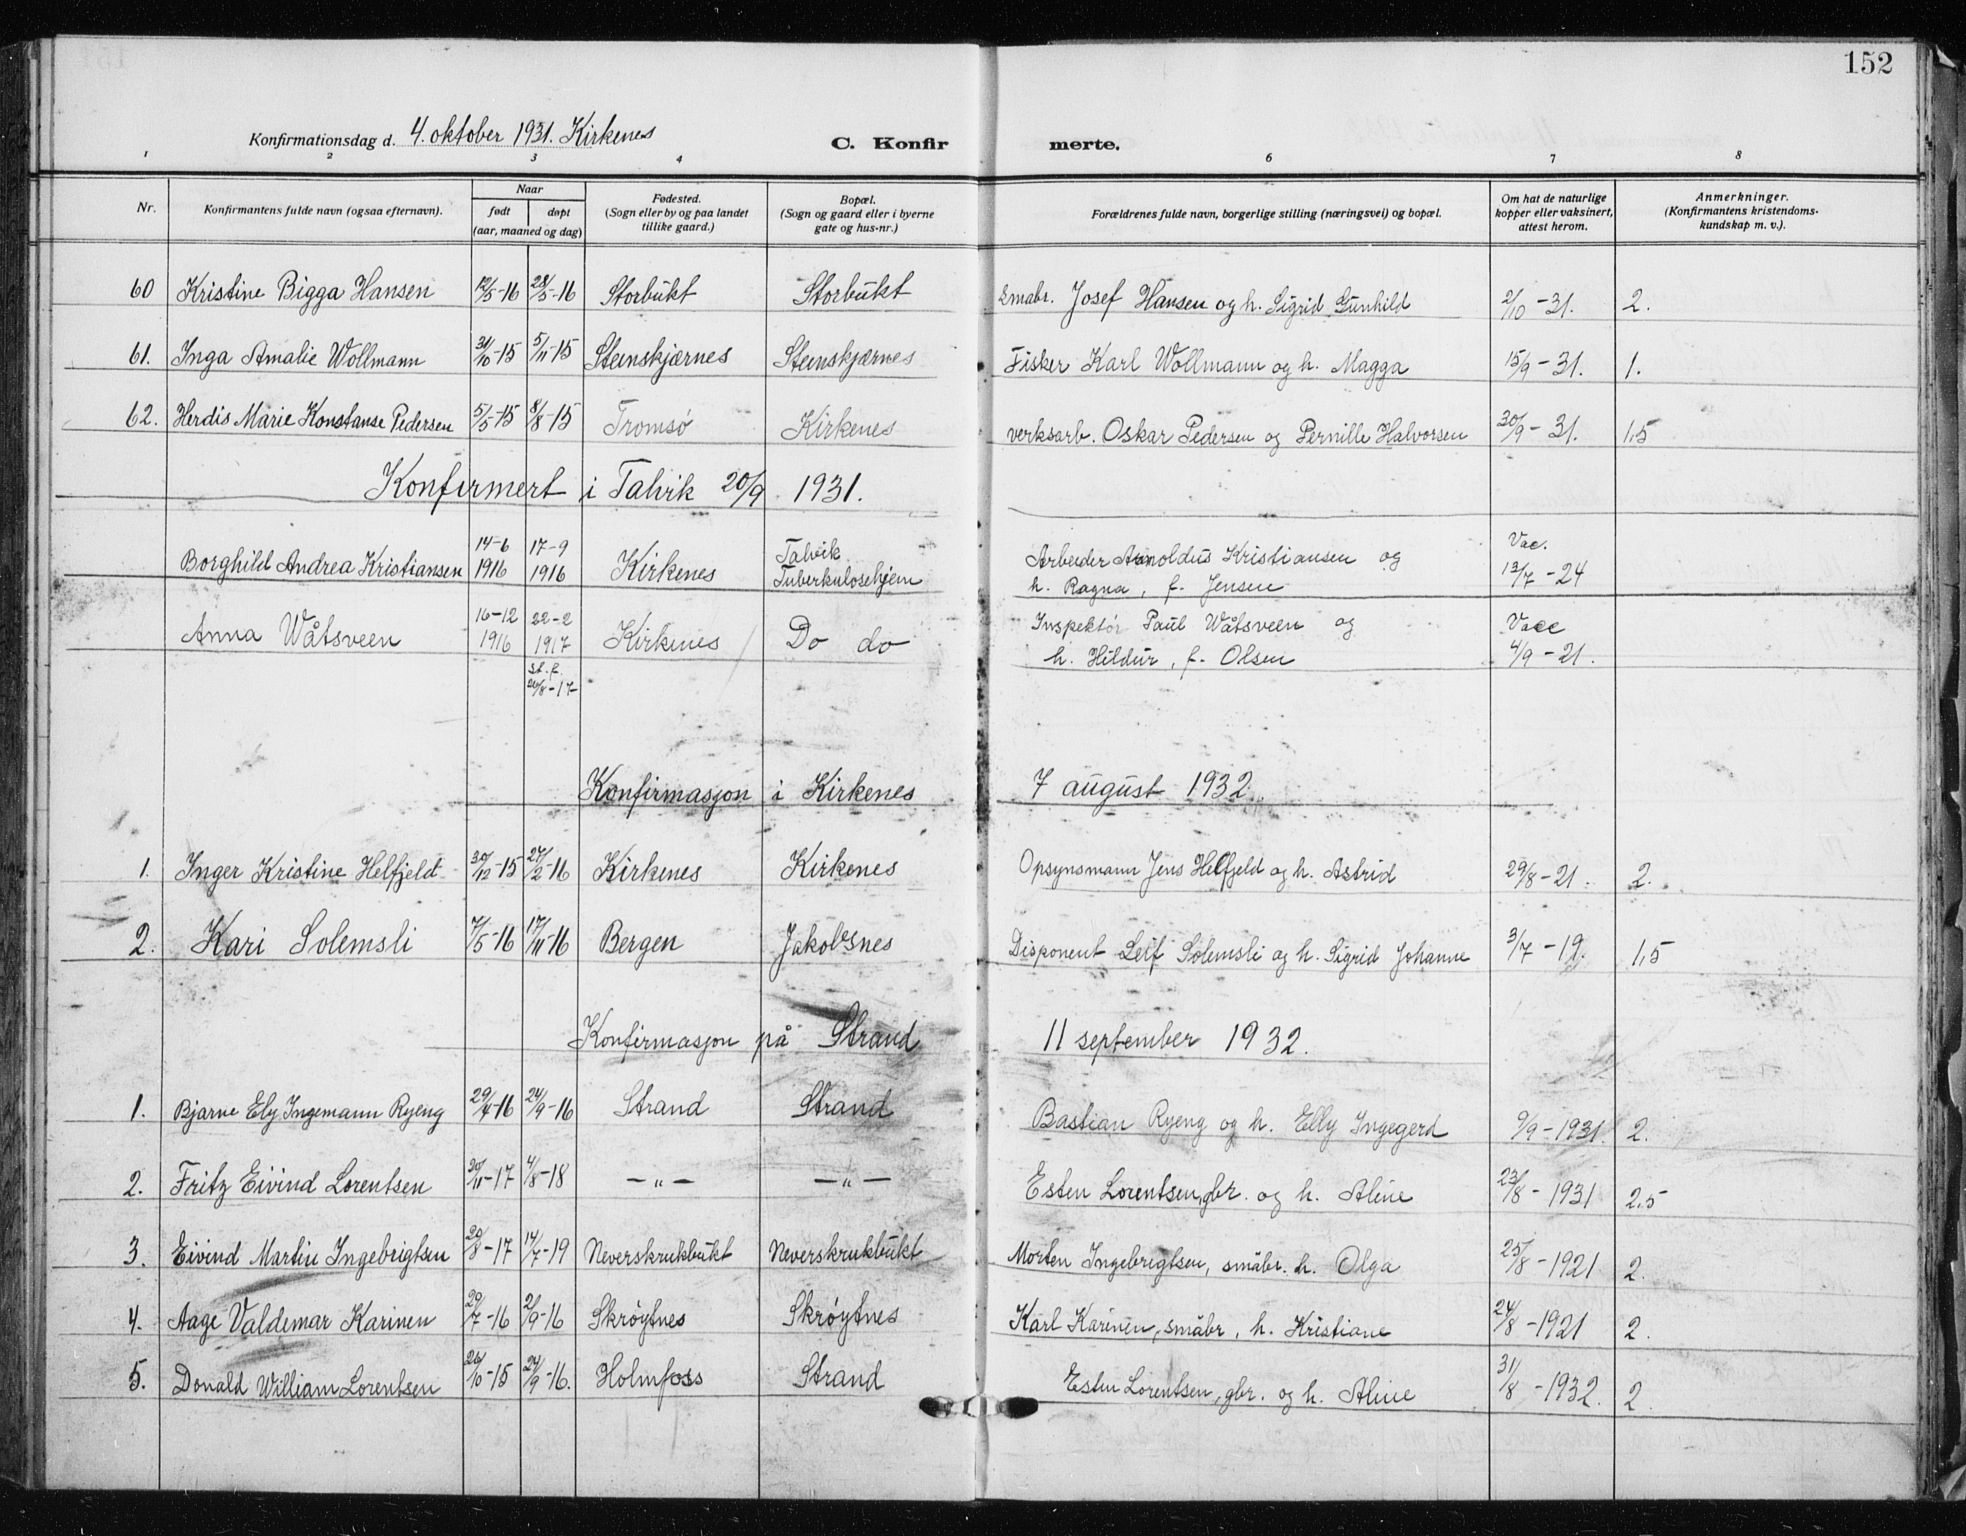 152
Konfirmationsdag d. 4. oktober 1931. Kirkenes C. Konfirmerte.
1 2 3 4 6 7 8
Nr. Konfirmantens fulde navn (ogsaa efternavn). Naar født døpt (aar, maaned og dag) Fødested. (Sogn eller by og paa landet tillike gaard.) Bopæl. (Sogn og gaard eller i byerne gate og hus-nr.) Forældrenes fulde navn, borgerlige stilling (næringsvei) og bopæl. Om hat de naturlige kopper eller vaksinert, attest herom. Anmerkninger. (Konfirmantens kristendomskundskap m. v.).
60 Kristine Bigga Hansen 12/5-16 28/5-16 Storbukt Storbukt Smabr. Josef Hansen og h. Sigrid Gunhild 2/10-31. 2.
61. Inga Amalie Wollmann 31/10-15 5/11-15 Steinskjærnes Steinskjærnes Fisker Karl Wollmann og h. Magga 15/9-31. 1.
62. Herdis Marie Konstanse Pedersen 5/5-15 8/8-15 Tromsø Kirkenes verksarb. Oskar Pedersen og Pernille Halvorsen 30/9-31. 1,5
Konfirmert i Talvik 20/9 1931.
Borghild Andrea Kristiansen 14-6 1916 17-9 1916 Kirkenes Talvik Tuberkulosehjem Arbeider Arnoldus Kristiansen og h. Ragna, f. Jensen Vac. 13/7-24
Anna Wåtsveen 16-12 1916 22-2 1917 st. f. 26/8-17 Kirkenes Do do Inspektör Paul Wåtsveen og h. Hildur, f. Olsen Vacc 4/9-21.
Konfirmasjon i Kirkenes 7 august 1932
1. Inger Kristine Helfjeld 30/12-15 27/2-16 Kirkenes Kirkenes Opsynsmann Jens Helfjeld og h. Astrid 29/8-21. 2.
2. Kari Solemsli 7/5-16 17/11-16 Bergen Jakobsnes Disponent Leif Solemsli og h. Sigrid Johanne 3/7-19. 1,5
Konfirmasjon på Strand 11 september 1932.
1. Bjarne Ely Ingemann Ryeng 29/4-16 24/9-16 Strand Strand Bastian Ryeng og h. Elly Ingegerd 9/9-1931. 2.
2. Fritz Eivind Lorentsen 20/11-17 4/8-18 -"- -"- Esten Lorentsen, gbr. og h. Aline 23/8-1931 2.5
3. Eivind Martin Ingebrigtsen 20/8-17 14/7-19 Neverskrukbukt Neverskrukbukt Morten Ingebrigtsen, småbr. h. Olga 25/8-1921 2.
4. Aage Valdemar Karinen 29/7-16 2/9-16 Skrøytnes Skrøytnes Karl Karinen, småbr, h. Kristiane 24/8-1921 2.
5. Donald William Lorentsen 26/10-15 24/9-16. Holmfoss Strand Esten Lorentsen, gbr. og h. Aline 31/8-1932. 2